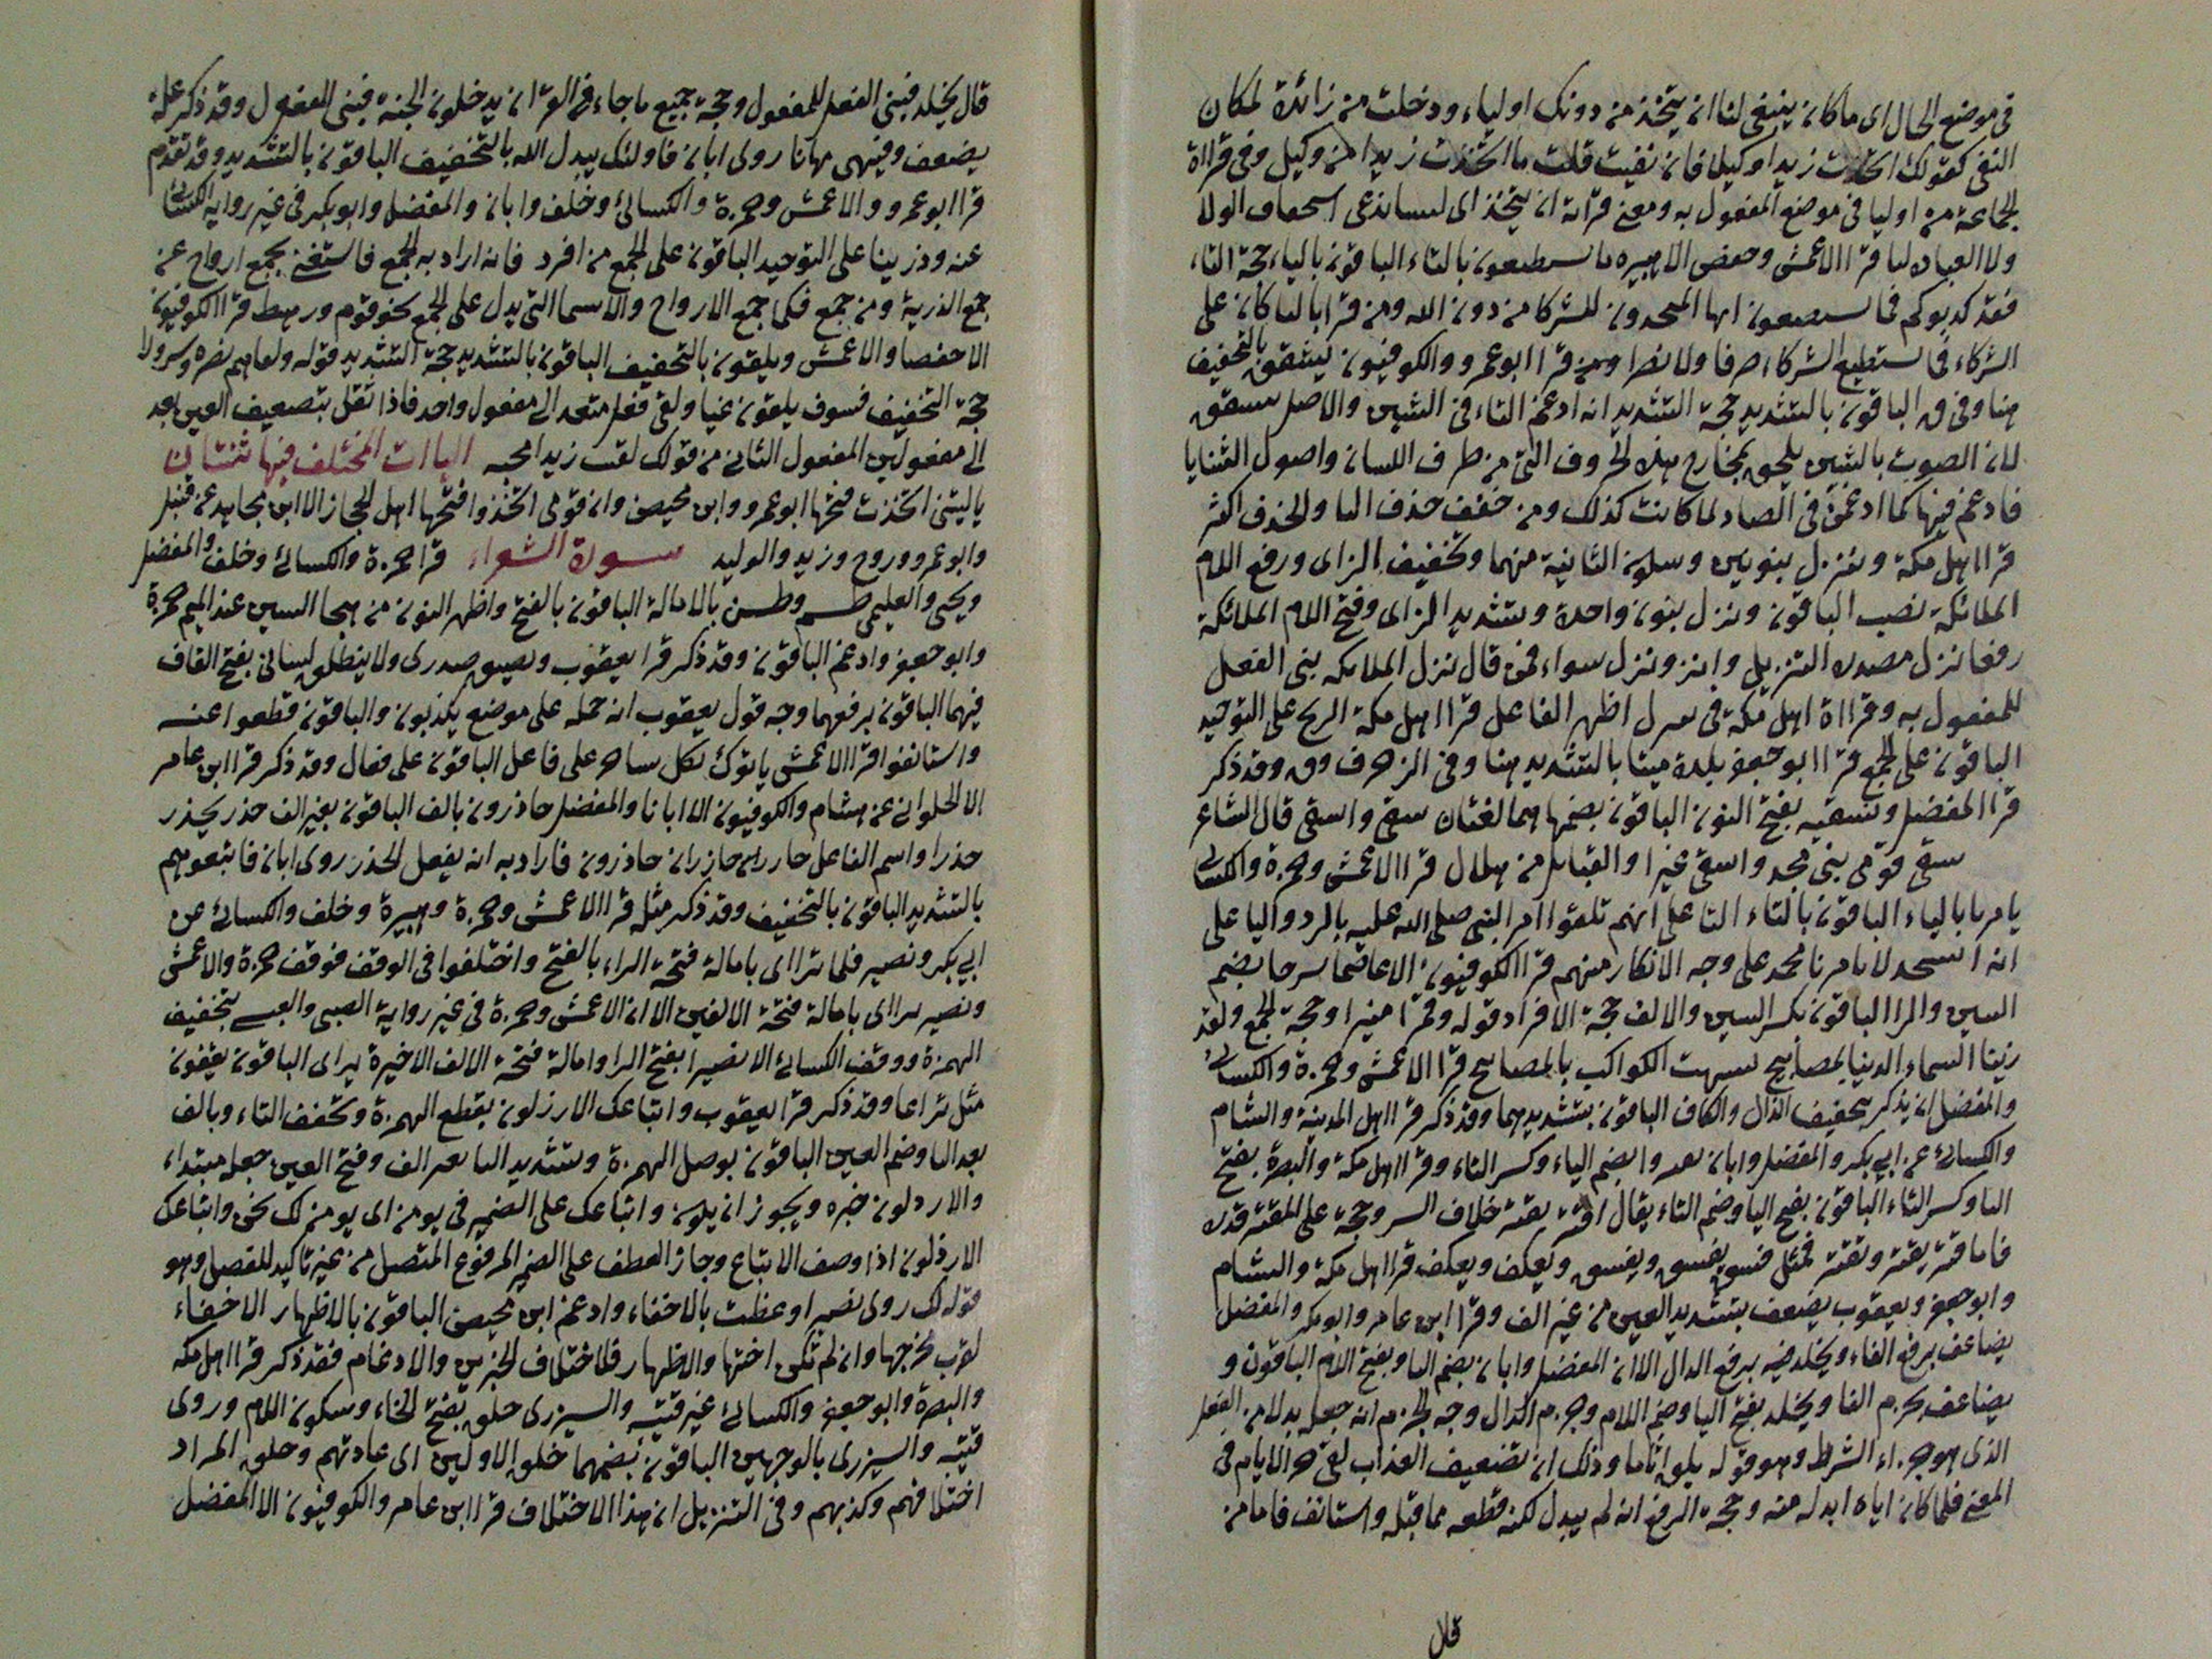 في موضع الحال اى ما كان ينبغى لنا ان يتخذ من دونك اولياء ودخلت من زائدة لمكان
النفى كقولك اتخذت زيدا وكيلا فان نفيت قلت ما اتخذت زيدا من وكيل وفى قراة
الجماعة من اوليا فى موضع المفعول به ومعنى قراة ان يتخذ اى لسنا ندعى استحقاق الولا
ولا العبادة لنا قرا الاعمش وحفص الا هبيره تستطيعون بالتاء الباقون بالياء حجة التاء
فقد كذبوكم فما تستطيعون ايها المتخذون للشركا من دون الله ومن قرا باليا كان على
الشركاء فما يستطيع الشركاء صرفا ولا نصرا ومن قرا ابو عمرو والكوفيون تشقق بالتخفيف
هنا وفى ق الباقون بالتشديد حجة التشديد انه ادغم التاء فى الشين والاصل تتشقق
لان الصوت بالشين يلحق بمخارج هذه الحروف التى من طرف اللسان واصول الثنايا
فادغم فيها كما ادغمن فى الصاد لما كانت كذلك ومن خفف حذف التا والحذف اكثر
قرا اهل مكة وننزل بنونين وسكون الثانية منهما وتخفيف الزاى ورفع اللام
الملائكة نصب الباقون ونزل بنون واحدة وتشديد الزاى وفتح اللام الملائكة
رفعا نزل مصدره التنزيل وانز ونزل سواء فمن قال نزل الملائكه بنى الفعل
للمفعول به وقراة اهل مكة فى ننزل اظهر الفاعل قرا اهل مكة الريح على التوحيد
الباقون على الجمع قرا ابو جعفر بلدة ميتا بالتشديد هنا وفى الزخرف وق وقد ذكر
قرا المفضل ونسقيه بفتح النون الباقون بضمها هما لغتان سقى واسقى قال الشاعر
سقى قومى بنى مجد واسقى نميرا والقبايل من هلال قرا الاعمش وحمزة والكسائى
يامرنا بالياء الباقون بالتاء التا على انهم تلقوا امر النبى صلى الله عليه بالرد واليا على
انه انسجد لما يامرنا محمد على وجه الانكار منهم قرا الكوفيون الا عاصما سرجا بضم
السين والرا الباقون بكسر السين والالف حجة الافراد قوله وقمرا منيرا وحجة الجمع ولقد
زينا السماء الدنيا بمصابيح شبهت الكواكب بالمصابيح قرا الاعمش وحمزة والكسائى
والمفضل ان يذكر بتخفيف الذال والكاف الباقون بتشديدهما وقد ذكر قرا اهل المدينة والشام
والكسائى عن ابي بكر والمفضل وابان يقتروا بضم الياء وكسر التاء وقرا اهل مكة والبصرة بفتح
اليا وكسر التاء الباقون بفتح اليا وضم التاء يقال اقتر يقتر خلاف اليسر وحجة على المقتر قدره
فاما قتر يقتر ويقتر فمثل فسق يفسق ويفسق ويعكف ويعكف قرا اهل مكة والشام
وابو جعفر ويعقوب يضعف بتشديد العين من غير الف وقرا ابن عامر وابو بكر والمفضل
يضاعف برفع الفاء ويخلد فيه برفع الدال الا ان المفضل وابان بضم اليا وبفتح اللام الباقون و
يضاعف بجزم الفا ويخلد بفتح اليا وضم اللام وجزم الدال وجه الجزم انه جعل بدلا من الفعل
الذى هو جزاء الشرط وهو قوله يلق اثاما وذلك ان تضعيف العذاب لقى الاثام فى
المعنى فلما كان اياه ابدله منه وحجة الرفع انه لم يبدل لكنه قطعه مما قبله واستانف فاما من
قال
قال يخلد فبنى الفعل للمفعول وحجة جميع ما جاء فى القران يدخلون الجنة فبنى المفعول وقد ذكر علة
يضعف وفيهى مهانا روى ابان فاولئك يبدل الله بالتخفيف الباقون بالتشديد وقد تقدم
قرا ابو عمرو والاعمش وحمزة والكسائى وخلف وابان والمفضل وابو بكر فى غير رواية الكسائى
عنه وذريتنا على التوحيد الباقون على الجمع من افرد فانه اراد به الجمع فاستغنى بجمع ازواج عن
جمع الذرية ومن جمع فكما جمع الازواج والاسما التى يدل على الجمع نحو قوم ورهط قرا الكوفيون
الا حفصا والاعمش ويلقون بالتخفيف الباقون بالتشديد حجة التشديد قوله ولقاهم نضرة وسرورا
حجة التخفيف فسوف يلقون غيا ولقى فعل متعد الى مفعول واحد فاذا ثقل بتضعيف العين تعد
الى مفعولين المفعول الثانى من قولك لقيت زيدا تحيه الياات المختلف فيها ثنتان
ياليتنى اتخذت فتحها ابو عمرو وابن محيصن وان قومى اتخذوا فتحها اهل الحجاز الا ابن مجاهد عن قنبل
وابو عمرو وروح وزيد والوليد سورة الشعراء قرا حمزة والكسائى وخلف والمفضل
ويحيى والعليمى طسم وطس بالامالة الباقون بالفتح واظهر النون من هجا السين عند الميم حمزة
وابو جعفر وادغم الباقون وقد ذكر قرا يعقوب ويضيق صدرى ولا ينطلق لسانى بفتح القاف
فيهما الباقون برفعهما وجه قول يعقوب انه حمله على موضع يكذبون والباقون قطعوا عنه
واستانفوا قرا الاعمش ياتوك بكل ساحر على فاعل الباقون على فعال وقد ذكر قرا ابن عامر
الا الحلوانى عن هشام والكوفيون الا ابانا والمفضل حاذرون بالف الباقون بغير الف حذر يحذر
حذرا واسم الفاعل حاذر حاذران حاذرون فاراد به انه يفعل الحذر روى ابان فاتبعوهم
بالتشديد الباقون بالتخفيف وقد ذكر مثله قرا الاعمش وحمزة وهبيرة وخلف والكسائى عن
ابي بكر ونصير فلما تراا اى بامالة فتحة الراء بالفتح واختلفوا فى الوقف فوقف حمزة والاعمش
ونصير تراى بامالة فتحة الالفين الا ان الاعمش وحمزة فى غير رواية الضبى والعبسى بتخفيف
الهمزة ووقف الكسائى الا نصيرا بفتح الرا وامالة فتحة الالف الاخيرة يراى الباقون يقفون
مثل تراعا وقد ذكر قرا يعقوب واتباعك الارذلون بقطع الهمزة وتخفف التاء وبالف
بعد البا وضم العين الباقون بوصل الهمزة وتشديد التا بغير الف وفتح العين جعله مبتداء
والارذلون خبره ويجوز ان يكون واتباعك على الضمير فى يومن اى يومن لك نحن واتباعك
الارذلون اذا وصف الاتباع وجاز العطف على الضمير المرفوع المتصل من غير تاكيد للفصل وهو
قوله لك روى نصير اوعظت بالاخفاء وادغم ابن محيصن الباقون بالاظهار الاخفاء
لقرب مخرجها وان لم تكن اختها والاظهار فلاختلاف الحيزين والادغام فقد ذكر قرا اهل مكه
والبصرة وابو جعفر والكسائى غير قتيبه والشيزرى خلق بفتح الخاء وسكون اللام وروى
قتيبه والشيزرى بالوجهين الباقون بضمهما خلق الاولين اى عادتهم وخلق المراد
اختلاقهم وكذبهم وفى التنزيل ان هذا الا اختلاف قرا ابن عامر والكوفيون الا المفضل